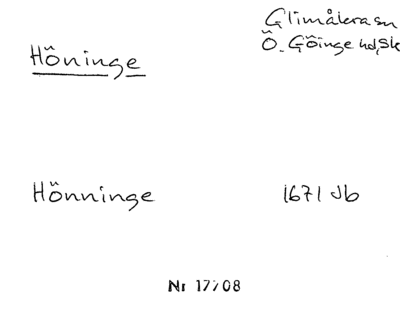 Glimåkra sn
Höninge
Ö. Göinge hd, Sk
Hönninge 1671 Jb
Nr 17708